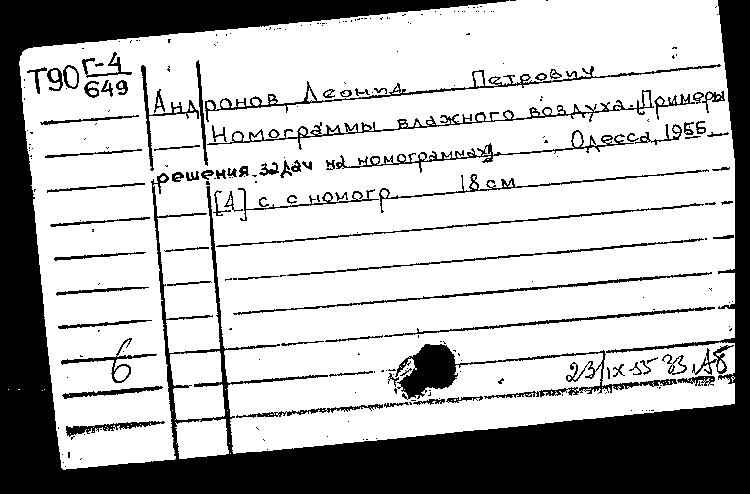 Т90 Г-4
649
Андронов, Леонид Петрович
Номограммы влажного воздуха. [Примеры
решения задач на номограммах]. Одесса, 1955.
[4] с. с номогр. 18 см
6
23/IX-55